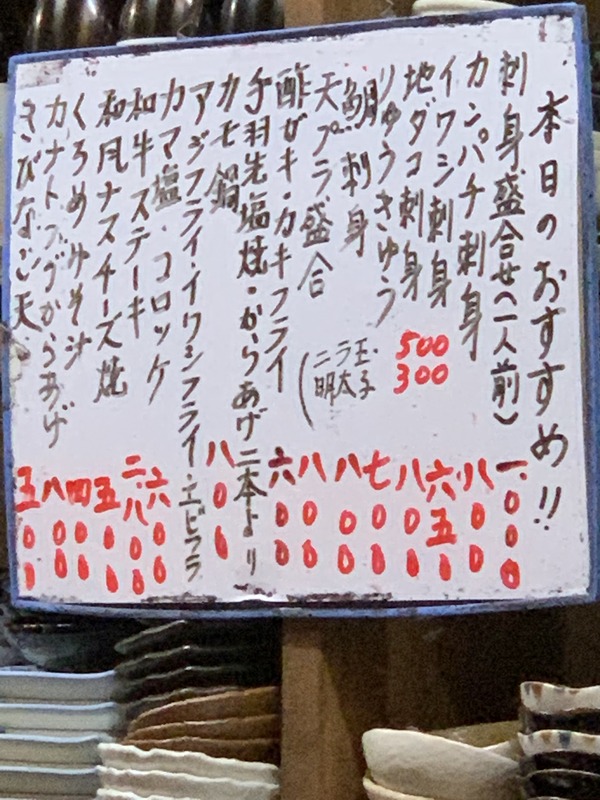 本日のおすすめ!!
刺身盛合せ(一人前) 一000
カンパチ刺身 八00
イワシ刺身 六五0
地ダコ刺身 八00
りゅうきゅう 七00
鯛刺身 八00
天プラ盛合 八00
(ニラ玉・ 500
明太子 300
酢ガキ・カキフライ 六00
手羽先塩焼・からあげ二本より
カモ鍋 八00
アジフライ・イワシフライ・エビフライ
カマ塩・コロッケ 六00
和牛ステーキ 二八00
和風ナスチーズ焼 五00
くろめみそ汁 四00
カナトフグからあげ 八00
きびなご天 五00